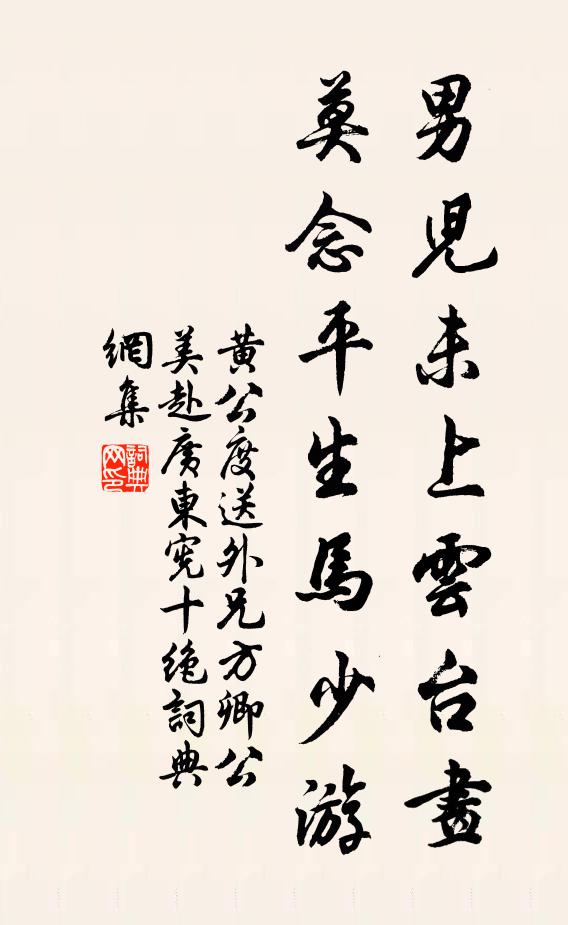 男児未上雲台畫
莫念平生馬少游
黄公度送外兄方卿公
美赴廣東宪十绝詞典
網集
詞典
网印